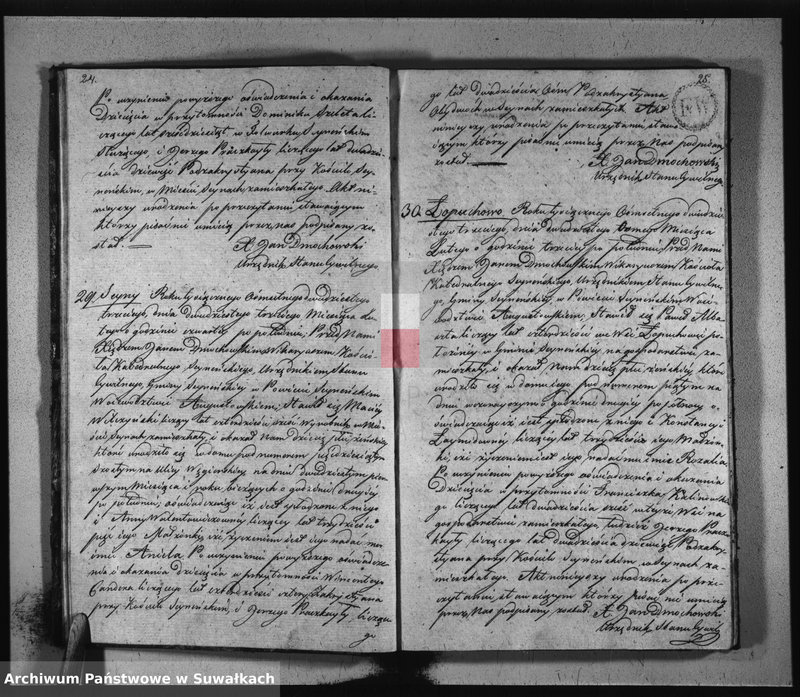 24.
Po uczynieniu powyższego oświadczenia i okazania
Dziecięcia w przytomności Dominika
liczącego lat sześćdziesiąt w Folwarku Seyneńskim
służącego, i Jerzego Praczkayty liczącego lat dwadzie-
ścia dziewięć Podzakrystyana przy Kościele Seyneń-
skim, w Mieście Seynach zamieszkałego. Akt ni-
nieyszy urodzenia po przeczytaniu stawaiącym
którzy pisać nie umieią przez nas podpisany zo-
stał.
X. Jan Dmochowski
Urzędnik Stanu Cywilnego
29. Seyny Roku tysiącznego Ośmsetnego dwudziestego
trzeciego, dnia dwudziestego trzeciego Miesiąca Lu-
tego o godzinie czwartey po południu, Przed Nami
Xiędzem Janem Dmochowskim Wikaryuszem Kościo-
ła Katedralnego Seyneńskiego, Urzędnikiem Stanu
Cywilnego, Gminy Seyneńskiey w Powiecie Seyneńskim
Woiewództwie Augustowskiem, Stawił się Maciey
lat czterdzieści sześć Wyrobnik w Mie-
ście Seynach zamieszkały i okazał Nam Dziecię płci żeńskiey
które urodziło się w domu pod numerem
na Ulicy na dniu dwudziestym pier-
wszym Miesiąca i roku bieżących o godzinie drugiey
po południu; oświadczaiąc iż iest spłodzone z niego
i Anny liczącey lat trzydzieści
pięć iego Małżonki, iż życzeniem iest iego nadać mu
imie Aniela. Po uczynieniu powyższego oświadcze-
nia i okazania dziecięcia w przytomności Wincentego
liczącego lat czterdzieści cztery Zakrystyana
przy Kościele Seyneńskim, i Jerzego Praczkayty liczące-
go
25.
go lat dwadzieścia Podzakrystyana
Obydwóch w Seynach zamieszkałych. Akt
ninieyszy urodzenia po przeczytaniu stawa-
iącym którzy pisać nie umieią przez Nas podpisany
został.
X. Jan Dmochowski
Urzędnik Stanu Cywilnego
30. Łopuchowo Roku tysiącznego Ośmsetnego dwudzie-
stego trzeciego, dnia dwudziestego Miesiąca
Lutego o godzinie trzeciey po południu, Przed Nami
Xiędzem Janem Dmochowskim Wikaryuszem Kościoła
Katedralnego Seyneńskiego, Urzędnikiem Stanu Cywilne-
go, Gminy Seyneńskiey, w Powiecie Seyneńskim Woie-
wództwie Augustowskiem, Stawił się Paweł
liczący lat czterdzieści we Wsi Łopuchowie po-
łożoney w Gminie Seyneńskiey na gospodarstwie za-
mieszkały i okazał Nam dziecię płci żeńskiey które
urodziło się w domu iego pod numerem piątym na
dniu wczorayszym o godzinie drugiey po północy o-
świadczaiąc iż iest spłodzone z niego i Konstancyi
liczącey lat trzydzieście iego Małżon-
ki, iż życzeniem iest iego nadać mu imie Rozalia
Po uczynieniu powyższego oświadczenia i okazania
Dziecięcia w przytomności Franciszka Kalinowskie-
go liczącego lat dwadzieścia sześć w teyże Wsi na
gospodarstwie zamieszkałego, tudzież Jerzego Pracz-
kayty liczącego lat dwadzieścia dziewięć Podzakry-
styana przy Kościele Seyneńskim w Seynach za-
mieszkałego. Akt ninieyszy urodzenia po prze-
czytaniu stawaiącym którzy pisać nie umieią
przez Nas podpisany został X. Jan Dmochowski
Urzędnik Stanu Cywil
Archiwum Państwowe w Suwałkach